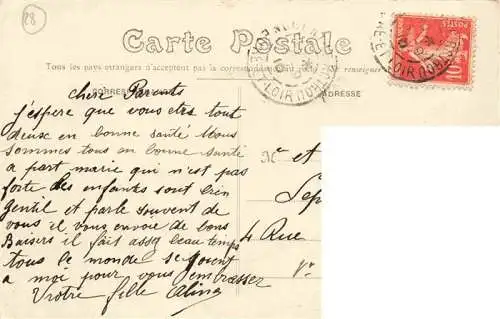 28
Carte Postale
Tous les pays étrangers n'acceptent pas la correspondance renseigner
CORRES
ADRESSE
LOIR
LOIR
POSTES
10
Chère Parents
J'espère que vous etes tout
deux en bonne santé Nous
sommes tous en bonne santé
a part marie qui n'est pas
forte des enfants sont bien
gentil et parle souvent de
vous il vous envoie de bons
Baisers il fait assez beau temps
tous le monde se joint
a moi pour vous embrasser
Vrotre fille Alina
Me et
Sep
4 Rue
Vr